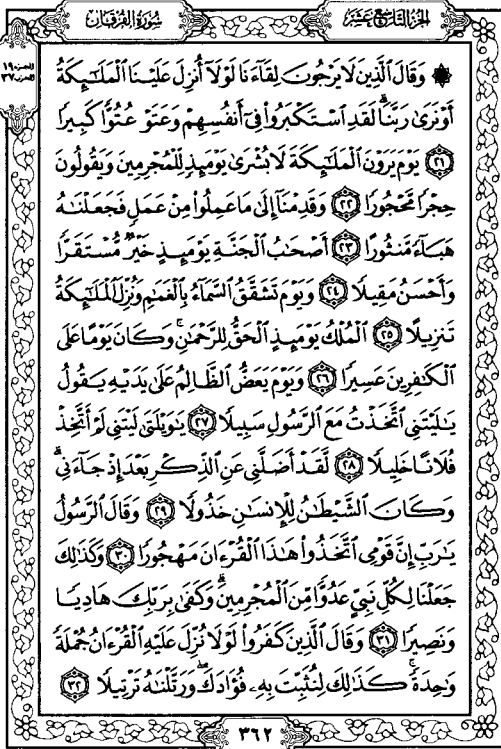 الجزء التاسع عشر
سورة الفرقان
الحزب ٣٧
۞ وَقَالَ ٱلَّذِينَ لَا يَرْجُونَ لِقَآءَنَا لَوْلَآ أُنزِلَ عَلَيْنَا ٱلْمَلَٰٓئِكَةُ
أَوْ نَرَىٰ رَبَّنَا ۗ لَقَدِ ٱسْتَكْبَرُوا۟ فِىٓ أَنفُسِهِمْ وَعَتَوْ عُتُوًّا كَبِيرًا
﴿٢١﴾ يَوْمَ يَرَوْنَ ٱلْمَلَٰٓئِكَةَ لَا بُشْرَىٰ يَوْمَئِذٍ لِّلْمُجْرِمِينَ وَيَقُولُونَ
حِجْرًا مَّحْجُورًا ﴿٢٢﴾ وَقَدِمْنَآ إِلَىٰ مَا عَمِلُوا۟ مِنْ عَمَلٍ فَجَعَلْنَٰهُ
هَبَآءً مَّنثُورًا ﴿٢٣﴾ أَصْحَٰبُ ٱلْجَنَّةِ يَوْمَئِذٍ خَيْرٌ مُّسْتَقَرًّا
وَأَحْسَنُ مَقِيلًا ﴿٢٤﴾ وَيَوْمَ تَشَقَّقُ ٱلسَّمَآءُ بِٱلْغَمَٰمِ وَنُزِّلَ ٱلْمَلَٰٓئِكَةُ
تَنزِيلًا ﴿٢٥﴾ ٱلْمُلْكُ يَوْمَئِذٍ ٱلْحَقُّ لِلرَّحْمَٰنِ ۚ وَكَانَ يَوْمًا عَلَى
ٱلْكَٰفِرِينَ عَسِيرًا ﴿٢٦﴾ وَيَوْمَ يَعَضُّ ٱلظَّالِمُ عَلَىٰ يَدَيْهِ يَقُولُ
يَٰلَيْتَنِى ٱتَّخَذْتُ مَعَ ٱلرَّسُولِ سَبِيلًا ﴿٢٧﴾ يَٰوَيْلَتَىٰ لَيْتَنِى لَمْ أَتَّخِذْ
فُلَانًا خَلِيلًا ﴿٢٨﴾ لَّقَدْ أَضَلَّنِى عَنِ ٱلذِّكْرِ بَعْدَ إِذْ جَآءَنِى ۗ
وَكَانَ ٱلشَّيْطَٰنُ لِلْإِنسَٰنِ خَذُولًا ﴿٢٩﴾ وَقَالَ ٱلرَّسُولُ
يَٰرَبِّ إِنَّ قَوْمِى ٱتَّخَذُوا۟ هَٰذَا ٱلْقُرْءَانَ مَهْجُورًا ﴿٣٠﴾ وَكَذَٰلِكَ
جَعَلْنَا لِكُلِّ نَبِىٍّ عَدُوًّا مِّنَ ٱلْمُجْرِمِينَ ۗ وَكَفَىٰ بِرَبِّكَ هَادِيًا
وَنَصِيرًا ﴿٣١﴾ وَقَالَ ٱلَّذِينَ كَفَرُوا۟ لَوْلَا نُزِّلَ عَلَيْهِ ٱلْقُرْءَانُ جُمْلَةً
وَٰحِدَةً ۚ كَذَٰلِكَ لِنُثَبِّتَ بِهِۦ فُؤَادَكَ ۖ وَرَتَّلْنَٰهُ تَرْتِيلًا ﴿٣٢﴾
٣٦٢